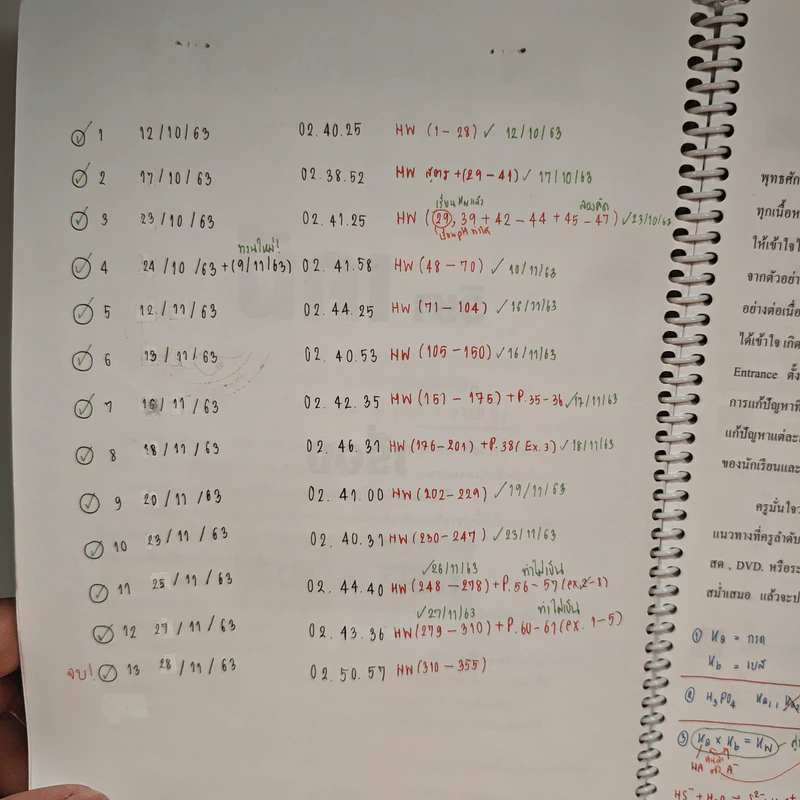 ✓ 1 12/10/63 02.40.25 HW (1-28) ✓ 12/10/63
✓ 2 17/10/63 02.38.52 HW สูตร + (29-41) ✓ 17/10/63
เรียนใหม่แล้ว ลองคิด
✓ 3 23/10/63 02.41.25 HW (29, 39 + 42-44 + 45-47) ✓ 23/10/63
ทวนใหม่!
✓ 4 24/10/63 + (9/11/63) 02.41.58 HW (48-70) ✓ 10/11/63
✓ 5 12/11/63 02.44.25 HW (71-104) ✓ 16/11/63
✓ 6 13/11/63 02.40.53 HW (105-150) ✓ 16/11/63
✓ 7 16/11/63 02.42.35 HW (151-175) + P.35-36 ✓ 17/11/63
✓ 8 18/11/63 02.46.31 HW (176-201) + P.38 (Ex.3) ✓ 18/11/63
✓ 9 20/11/63 02.41.00 HW (202-229) ✓ 19/11/63
✓ 10 23/11/63 02.40.31 HW (230-247) ✓ 23/11/63
✓ 26/11/63 ทำไม่เป็น
✓ 11 25/11/63 02.44.40 HW (248-278) + P.56-57 (ex.2-3)
✓ 27/11/63 ทำไม่เป็น
✓ 12 27/11/63 02.43.36 HW (279-310) + P.60-61 (ex. 1-5)
จบ! ✓ 13 28/11/63 02.50.57 HW (310-355)
พุทธศัก
ทุกเนื้อห
ให้เข้าใจ
จากตัวอย่า
อย่างต่อเนื้อ
ได้เข้าใจ เกิด
Entrance ตั้ง
การแก้ปัญหาที่
แก้ปัญหาแต่ละ
ของนักเรียนและ
ครูมั่นใจว
แนวทางที่ครูลำดับ
สด , DVD. หรือระ
สม่ำเสมอ แล้วจะป
① Ka = กรด
Kb = เบส
② H₃PO₄ Ka₁,
③ Ka × Kb = Kw
HA A⁻